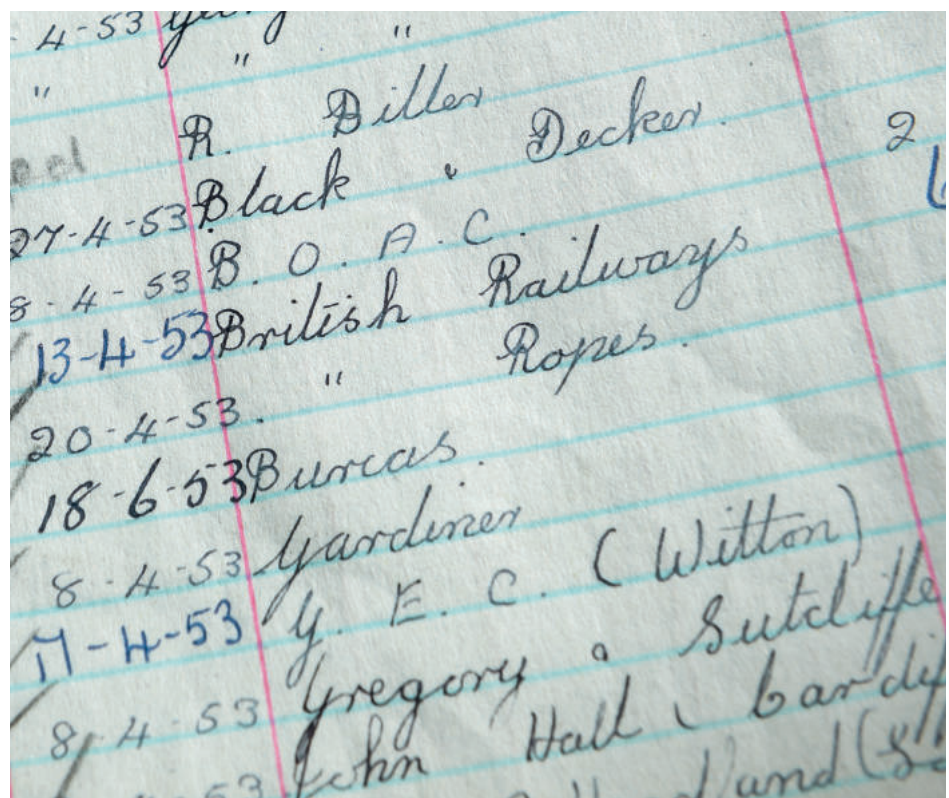 4-53
" " "
R. Biller
27-4-53 Black & Decker. 2
8-4-53 B.O.A.C.
13-4-53 British Railways
20-4-53. " Ropes.
18-6-53 Burcas.
8-4-53 Gardiner
17-4-53 G.E.C. (Witton)
8-4-53 Gregory & Sutcliffe
53 John Hall (Cardif